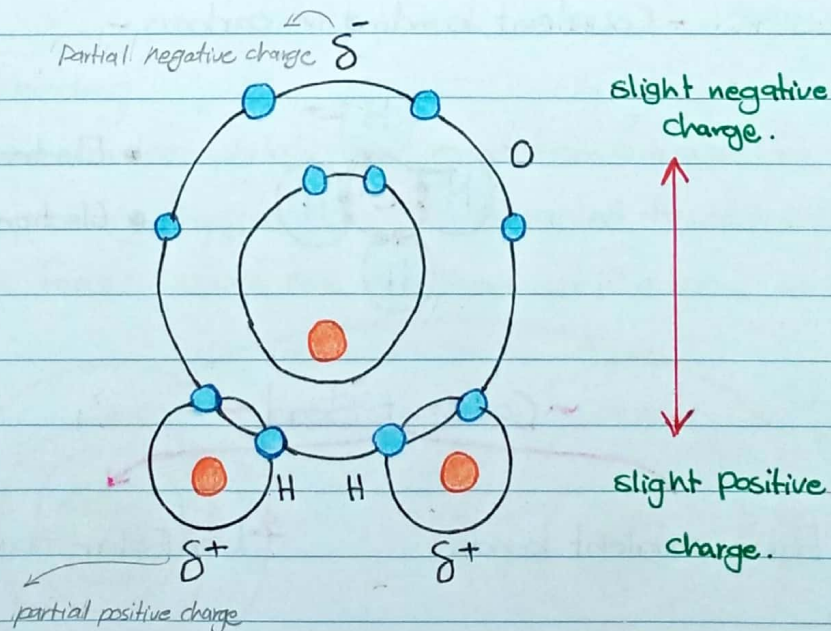 δ-
Partial negative charge
slight negative
charge.
O
H H
slight positive
charge.
δ+ δ+
partial positive charge